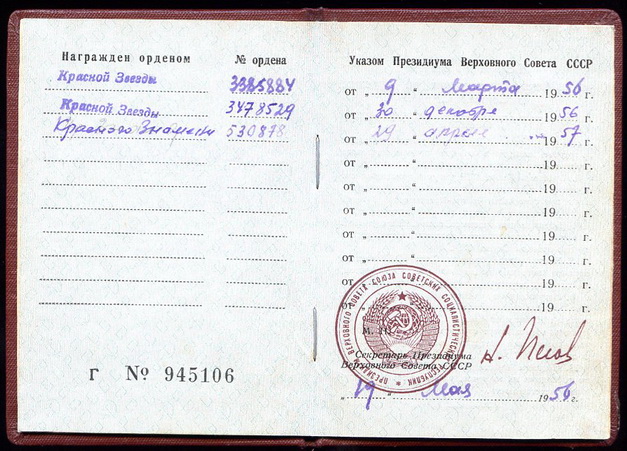 Награжден орденом № ордена
Красной Звезды 3385884
Красной Звезды 3478529
Красного Знамени 530878
Г № 945106
Указом Президиума Верховного Совета СССР
от „ 9 “ Марта 1956 г.
от „ 30 “ декабря 1956 г.
от „ 29 “ апреля 1957 г.
от „ “ 19 г.
от „ “ 19 г.
от „ “ 19 г.
от „ “ 19 г.
от „ “ 19 г.
от „ “ 19 г.
от „ “ 19 г.
ПРЕЗИДИУМ ВЕРХОВНОГО СОВЕТА СОЮЗА СОВЕТСКИХ СОЦИАЛИСТИЧЕСКИХ РЕСПУБЛИК
М. П.
Секретарь Президиума
Верховного Совета СССР
„ 19 “ Мая 1956 г.